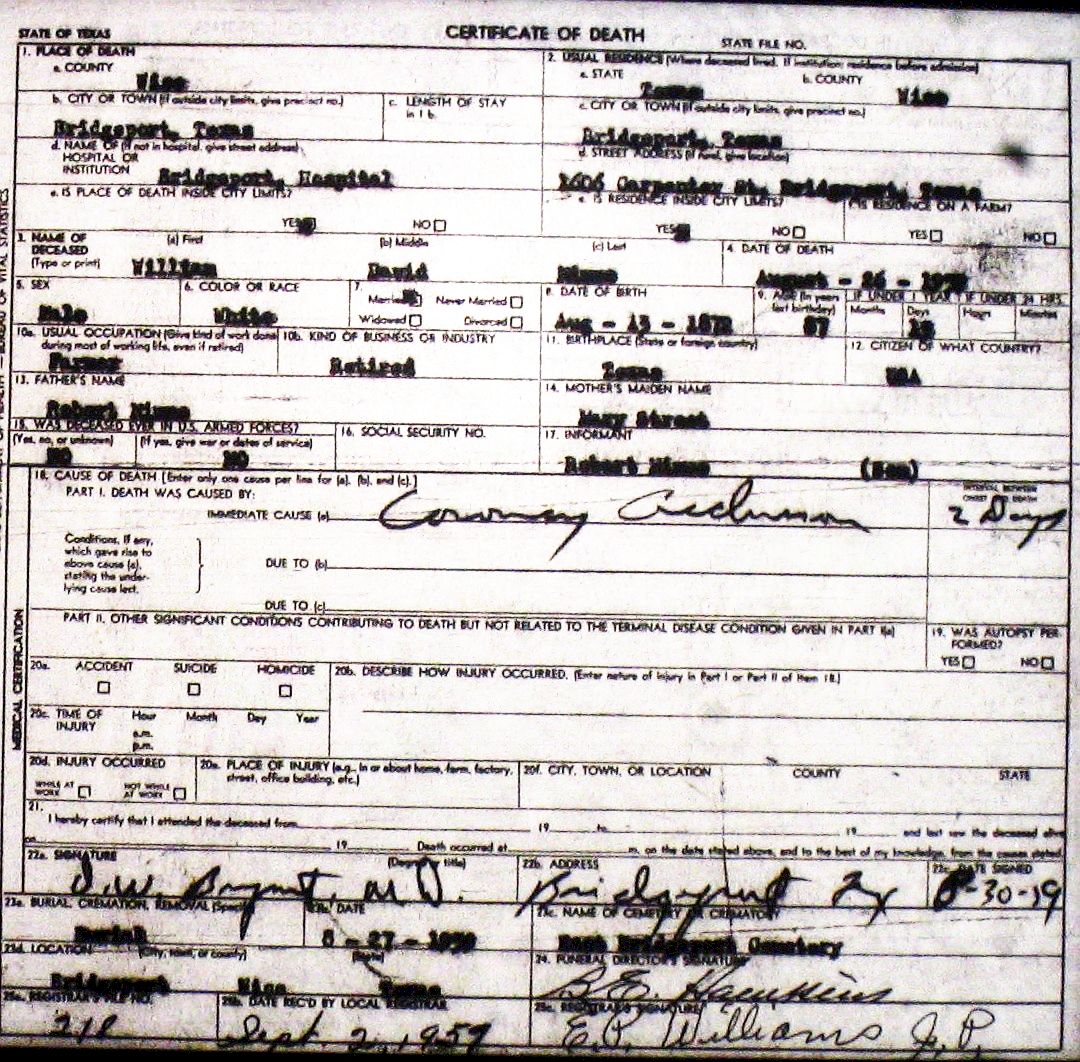 STATE OF TEXAS
CERTIFICATE OF DEATH
STATE FILE NO.
1. PLACE OF DEATH
a. COUNTY
Wise
2. USUAL RESIDENCE (Where deceased lived. If institution: residence before admission)
a. STATE
Texas
b. COUNTY
Wise
b. CITY OR TOWN (If outside city limits, give precinct no.)
Bridgeport, Texas
c. LENGTH OF STAY
in 1 b.
c. CITY OR TOWN (If outside city limits, give precinct no.)
Bridgeport, Texas
d. NAME OF (If not in hospital, give street address)
HOSPITAL OR
INSTITUTION
Bridgeport, Hospital
d. STREET ADDRESS (If rural, give location)
1606 Carpenter St, Bridgeport, Texas
e. IS PLACE OF DEATH INSIDE CITY LIMITS?
YES NO
e. IS RESIDENCE INSIDE CITY LIMITS?
YES NO
f. IS RESIDENCE ON A FARM?
YES NO
3. NAME OF
DECEASED
(Type or print)
(a) First
William
(b) Middle
David
(c) Last
4. DATE OF DEATH
August - 26 - 1959
5. SEX
Male
6. COLOR OR RACE
White
7.
Married Never Married
Widowed Divorced
8. DATE OF BIRTH
Aug - 13 - 1872
9. AGE (In years
last birthday)
87
IF UNDER 1 YEAR
Months Days
13
IF UNDER 24 HRS.
Hours Minutes
10a. USUAL OCCUPATION (Give kind of work done
during most of working life, even if retired)
Farmer
10b. KIND OF BUSINESS OR INDUSTRY
Retired
11. BIRTHPLACE (State or foreign country)
Texas
12. CITIZEN OF WHAT COUNTRY?
USA
13. FATHER'S NAME
Robert
14. MOTHER'S MAIDEN NAME
Mary Street
15. WAS DECEASED EVER IN U.S. ARMED FORCES?
(Yes, no, or unknown)
NO
(If yes, give war or dates of service)
NO
16. SOCIAL SECURITY NO.
17. INFORMANT
Robert (Son)
MEDICAL CERTIFICATION
18. CAUSE OF DEATH [Enter only one cause per line for (a), (b), and (c).]
PART I. DEATH WAS CAUSED BY:
IMMEDIATE CAUSE (a) Coronary Occlusion
INTERVAL BETWEEN
ONSET & DEATH
2 Days
Conditions, if any,
which gave rise to
above cause (a),
stating the under-
lying cause last.
DUE TO (b)
DUE TO (c)
PART II. OTHER SIGNIFICANT CONDITIONS CONTRIBUTING TO DEATH BUT NOT RELATED TO THE TERMINAL DISEASE CONDITION GIVEN IN PART I(a)
19. WAS AUTOPSY PER-
FORMED?
YES NO
20a. ACCIDENT SUICIDE HOMICIDE
20b. DESCRIBE HOW INJURY OCCURRED. (Enter nature of injury in Part I or Part II of Item 18.)
20c. TIME OF
INJURY
Hour Month Day Year
a.m.
p.m.
20d. INJURY OCCURRED
WHILE AT
WORK
NOT WHILE
AT WORK
20e. PLACE OF INJURY (e.g., in or about home, farm, factory,
street, office building, etc.)
20f. CITY, TOWN, OR LOCATION COUNTY STATE
21.
I hereby certify that I attended the deceased from 19 to 19 and last saw the deceased alive
on 19 Death occurred at m. on the date stated above, and to the best of my knowledge, from the causes stated.
22a. SIGNATURE (Degree or title)
Bryant, M D.
22b. ADDRESS
Bridgeport Tex
22c. DATE SIGNED
8-30-59
23a. BURIAL, CREMATION, REMOVAL (Specify)
Burial
23b. DATE
8 - 27 - 1959
23c. NAME OF CEMETERY OR CREMATORY
East Bridgeport Cemetery
23d. LOCATION (City, town, or county) (State)
Bridgeport Wise Texas
24. FUNERAL DIRECTOR'S SIGNATURE
B.E. Hawkins
25a. REGISTRAR'S FILE NO.
218
25b. DATE REC'D BY LOCAL REGISTRAR
Sept. 2, 1959
25c. REGISTRAR'S SIGNATURE
E.P. Williams J.P.